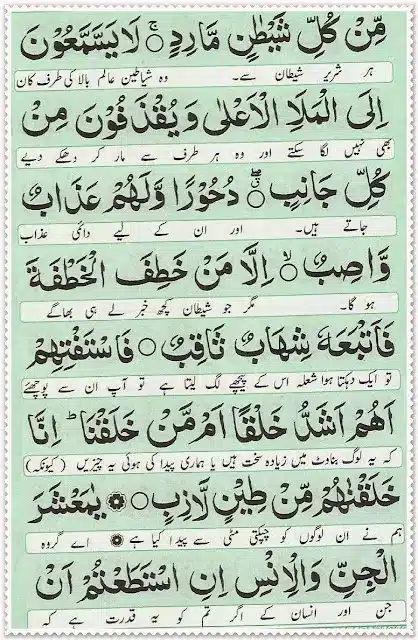 مِّنْ كُلِّ شَيْطٰنٍ مَّارِدٍ ۚ لَا يَسَّمَّعُوْنَ
ہر شریر شیطان سے۔ وہ شیاطین عالم بالا کی طرف کان
اِلَى الْمَلَاِ الْاَعْلٰى وَيُقْذَفُوْنَ مِنْ
بھی نہیں لگا سکتے اور وہ ہر طرف سے مار کر دھکے دیے
كُلِّ جَانِبٍ ۖ دُحُوْرًا وَّلَهُمْ عَذَابٌ
جاتے ہیں۔ اور ان کے لیے دائمی عذاب
وَّاصِبٌ ۙ اِلَّا مَنْ خَطِفَ الْخَطْفَةَ
ہو گا۔ مگر جو شیطان کچھ خبر لے ہی بھاگے
فَاَتْبَعَهٗ شِهَابٌ ثَاقِبٌ ○ فَاسْتَفْتِهِمْ
تو ایک دہکتا ہوا شعلہ اس کے پیچھے لگ لیتا ہے تو آپ ان سے پوچھئے
اَهُمْ اَشَدُّ خَلْقًا اَمْ مَّنْ خَلَقْنَا ؕ اِنَّا
کہ یہ لوگ بناوٹ میں زیادہ سخت ہیں یا ہماری پیدا کی ہوئی یہ چیزیں (کیونکہ)
خَلَقْنٰهُمْ مِّنْ طِيْنٍ لَّازِبٍ ○ يٰمَعْشَرَ
ہم نے ان لوگوں کو چپکتی مٹی سے پیدا کیا ہے اے گروہ
الْجِنِّ وَالْاِنْسِ اِنِ اسْتَطَعْتُمْ اَنْ
جن اور انسان کے اگر تم کو یہ قدرت ہے کہ